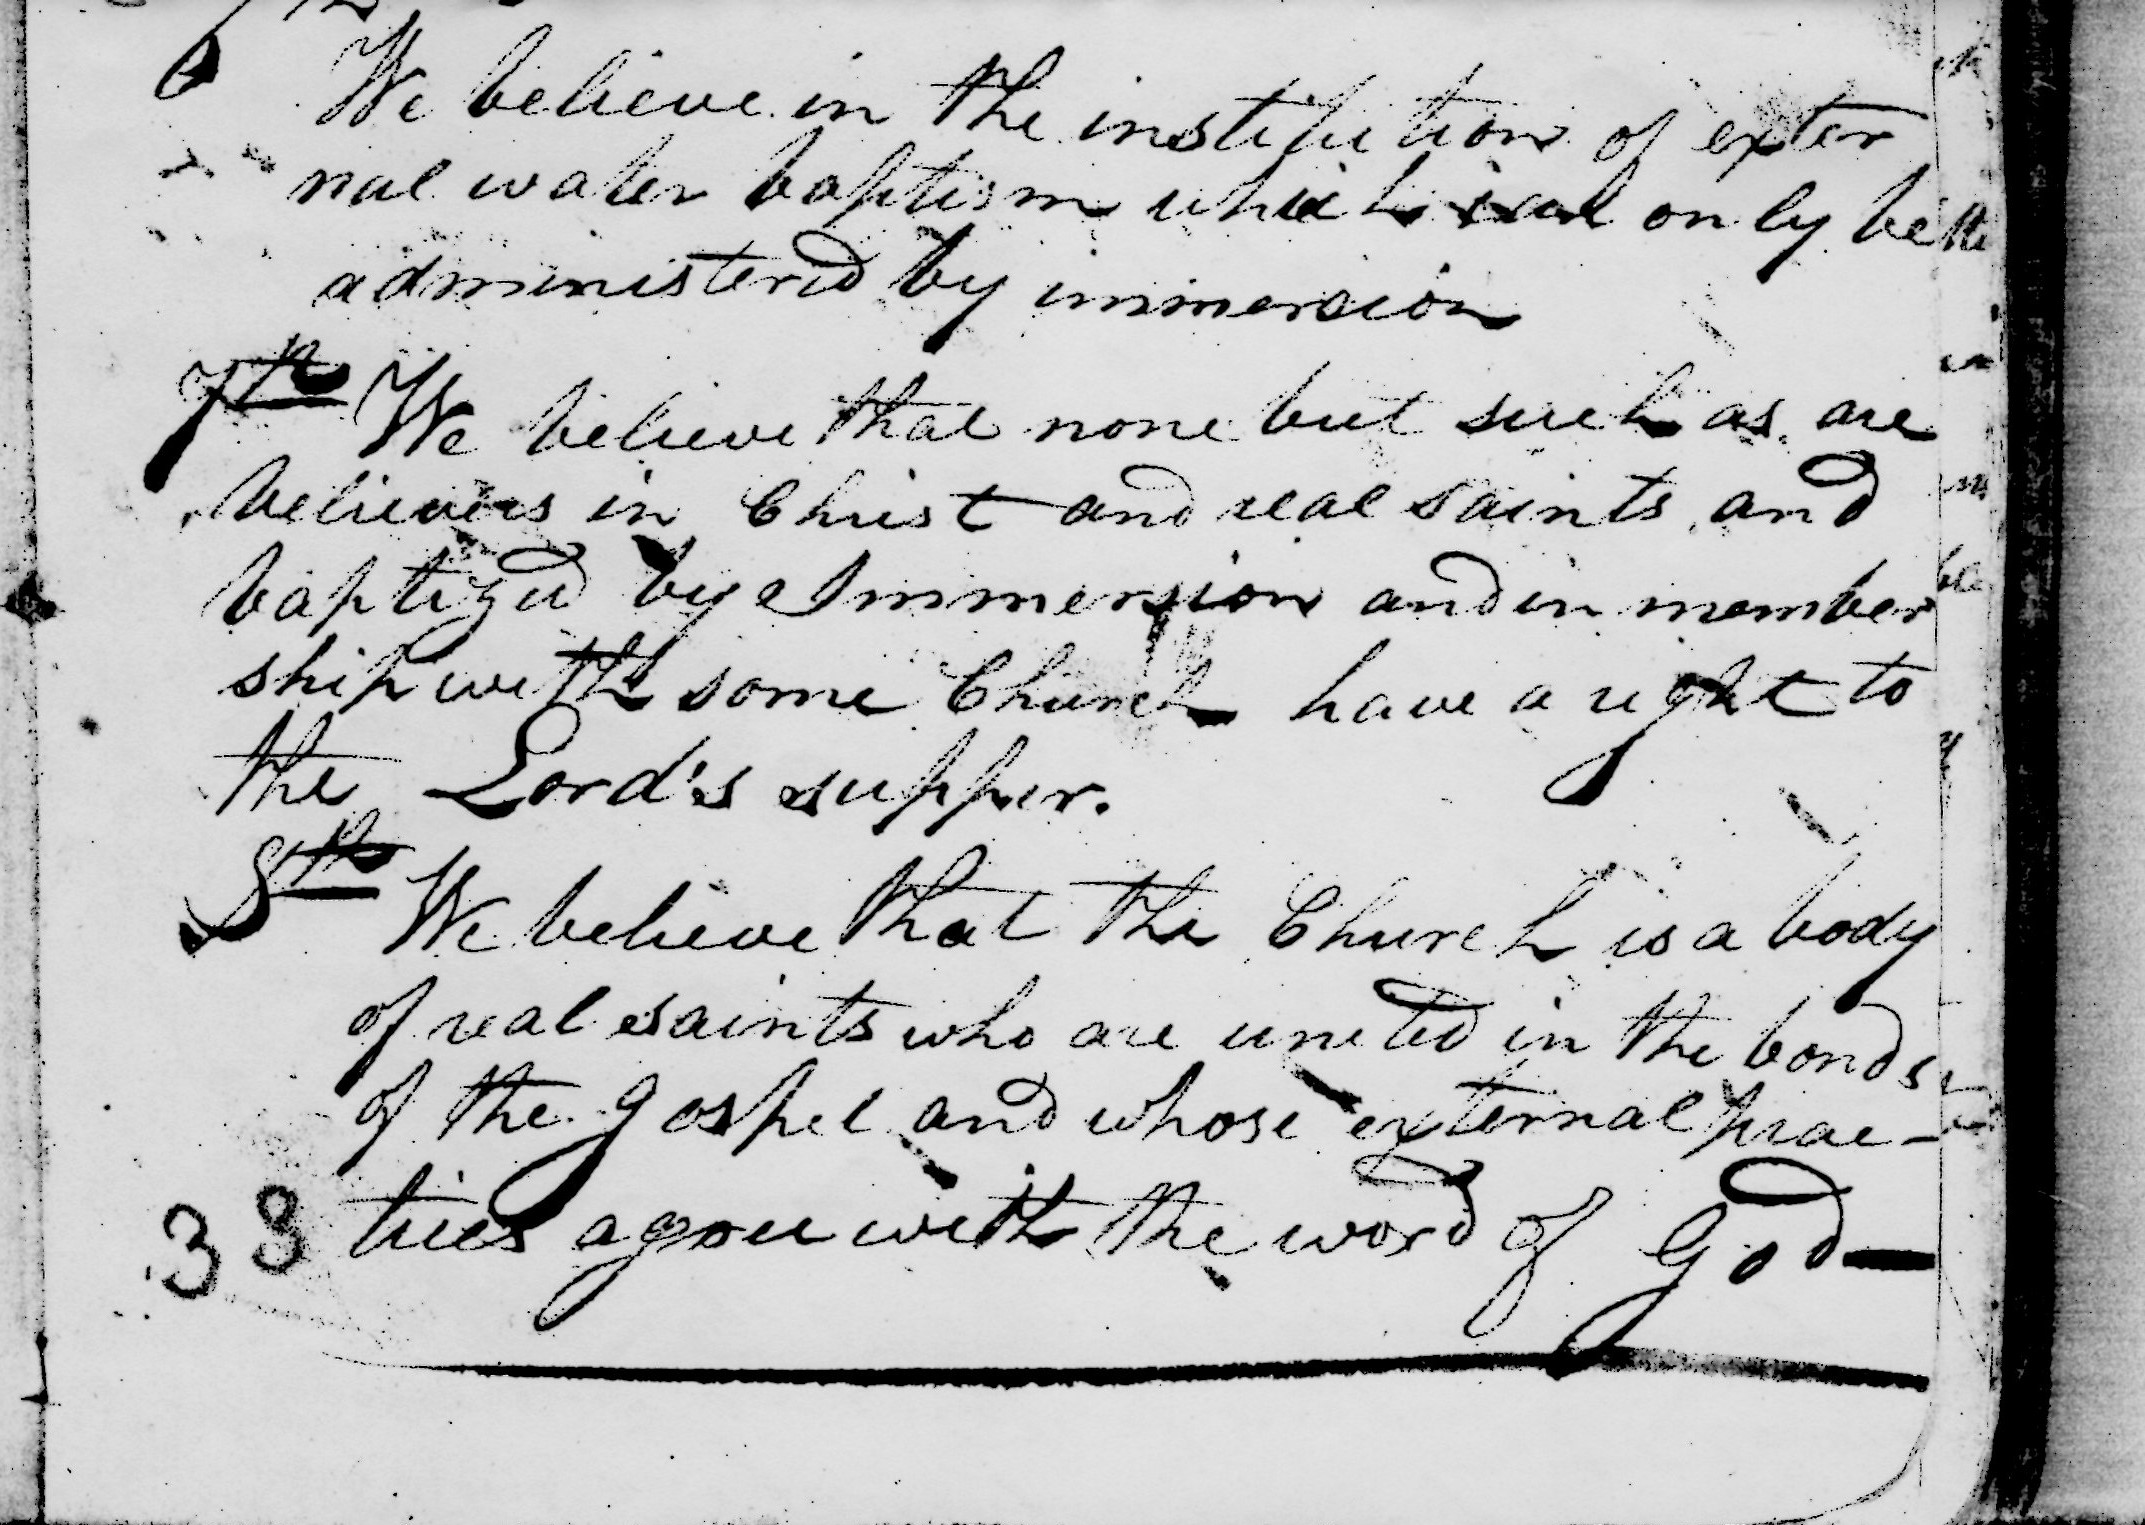 6 We believe in the institution of exter
nal water baptism which can only be
administered by immersion
7th We believe that none but such as are
believers in Christ and real saints and
baptized by Immersion and in member
ship with some Church have a right to
the Lord's supper.
8th We believe that the Church is a body
of real saints who are united in the bonds
of the gospel and whose external prac-
ties agree with the word of God—
38